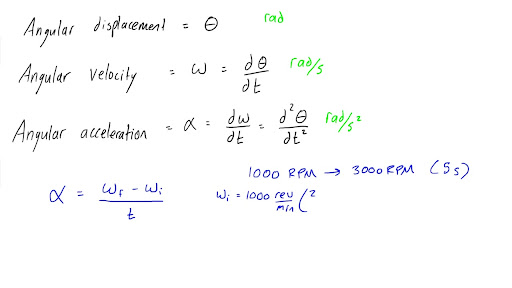 Angular displacement = θ rad
Angular velocity = ω = dθ/dt rad/s
Angular acceleration = α = dω/dt = d²θ/dt² rad/s²
1000 RPM → 3000 RPM (5s)
α = (ωf - ωi)/t ωi = 1000 rev/min (2